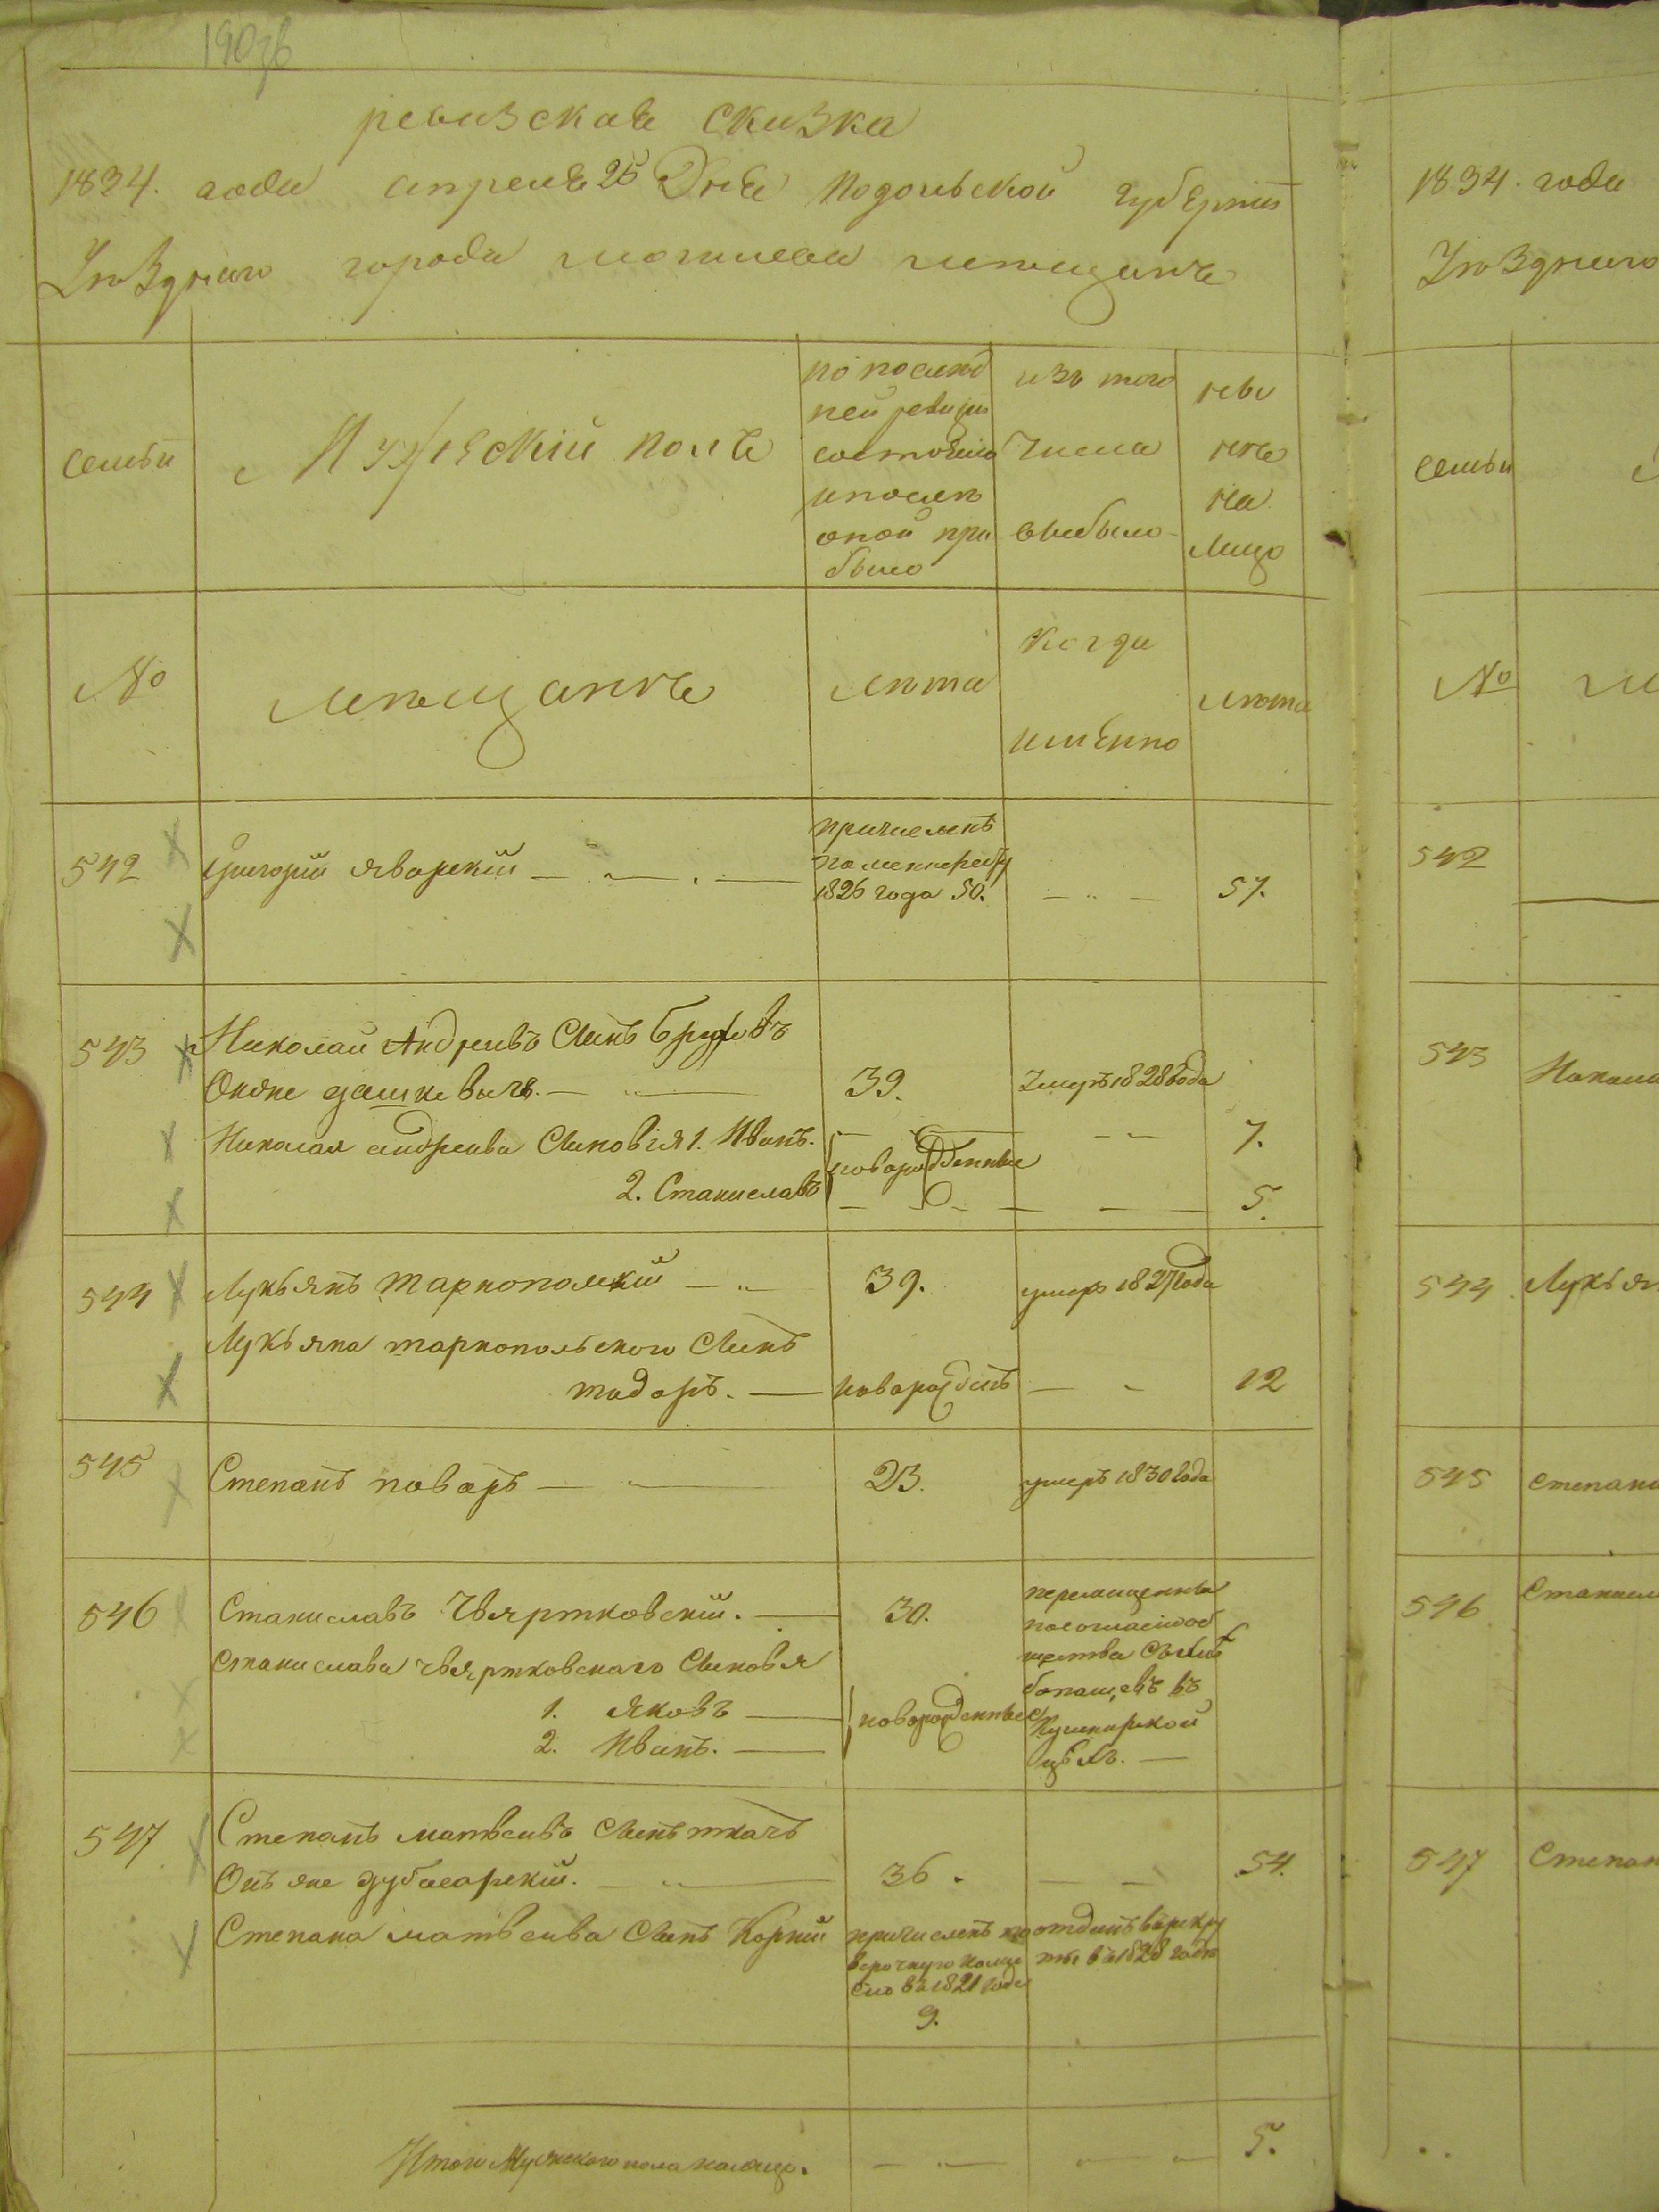 190
ревизская сказка
1834. года апреля 25 Дня Подольской губернии
Уѣзднаго города могилева мещанъ
семьи
Мужескій полъ
по послѣд
ней ревизіи
состояло
и послѣ
оной при
было
изъ того
числа
выбыло
ны
нѣ
на
лицо
№
мещанъ
лѣта
когда
именно
лѣта
542
Григорій яворскій
причисленъ
1826 года 50.
57.
543
Николай Андреивъ Сынъ
Онже дашкевичъ.
39.
Умеръ 1828 года
Николая андреива Сыновія 1. Иванъ.
7.
новорожденные
2. Станиславъ
5.
544
Лукьянъ тарнополскій
39.
умеръ 1827 года
Лукьяна тарнопольского Сынъ
тадоръ. новорожденъ
12
545
Степанъ поваръ
23.
умеръ 1830 года
546
Станиславъ Чвяртковскій.
30.
Станислава чвяртковскаго Сыновя
1. Яковъ
2. Иванъ.
новорожденные
перемещенны
547
Степанъ матвеивъ Сынъ ткачъ
Онъ же дубасарскій.
36.
54.
Степана матвеива Сынъ Корній
причисленъ по
въ 1821 годе
9.
отданъ въ рекру
ты въ 1828 годе
Итого Мужескаго пола налицо.
5.
1834. года
Уѣзднаго
семьи
№
542
543
544
Лукья
545
Степана
546
Станисл
547
Степан